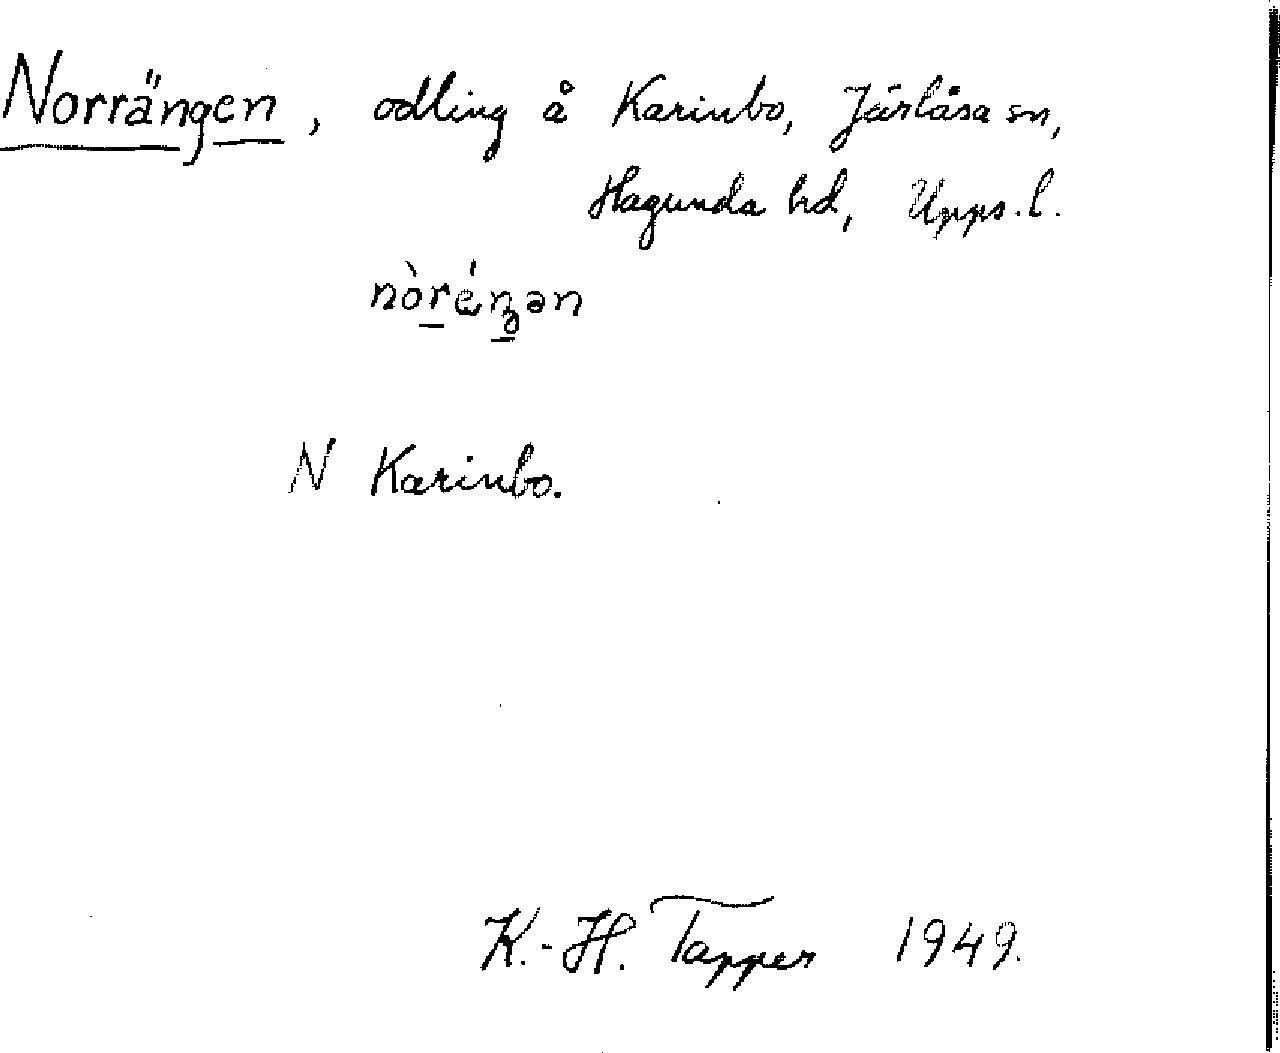 Norrängen, odling å Karinbo, Järlåsa sn,
Hagunda hd, Upps. l.
nòréŋən
N Karinbo.
K.-H. Tapper 1949.